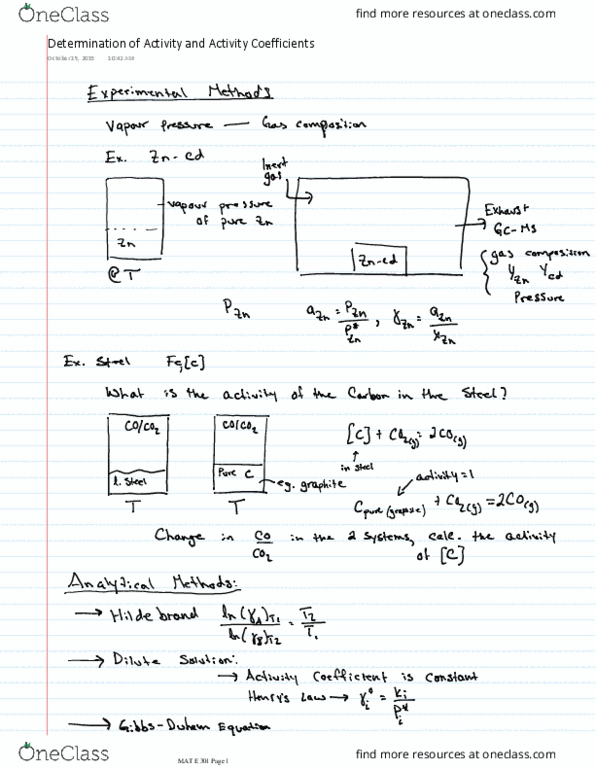 OneClass
find more resources at oneclass.com
Determination of Activity and Activity Coefficients
October 19, 2015 10:42 AM
Experimental Methods
Vapour Pressure — Gas composition
Ex. Zn-Cd
Inert gas
vapour pressure of pure Zn
Zn
@ T
Zn-Cd
Exhaust
GC-MS
gas composition
Y_Zn Y_Cd
Pressure
P_Zn
a_Zn = P_Zn / P*_Zn , γ_Zn = a_Zn / x_Zn
Ex. Steel Fe, [C]
What is the activity of the Carbon in the Steel?
CO/CO₂
l. Steel
T
CO/CO₂
Pure C
eg. graphite
T
[C] + CO₂(g) = 2CO(g)
↑
in steel
activity = 1
C pure (graphite) + CO₂(g) = 2CO(g)
Change in CO/CO₂ in the 2 systems, calc. the activity
of [C]
Analytical Methods:
→ Hildebrand ln(γ_A)T₁ / ln(γ_B)T₂ = T₂ / T₁
→ Dilute Solution:
→ Activity Coefficient is Constant
Henry's Law → γ°_i = k_i / P*_i
→ Gibbs-Duhem Equation
OneClass
MAT E 301 Page 1
find more resources at oneclass.com